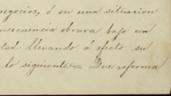 negocios, ó en una situación
nsecuencia obrara bajo un
tad llevando á efecto su
lo siguiente= Que reforma